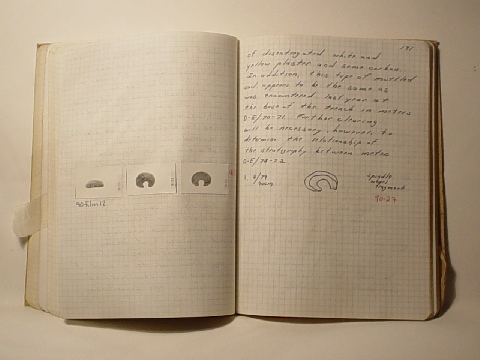 90-Film 12
195
of disentegrated white and
yellow plaster and some carbon.
In addition, this type of mottled
soil appears to be the same as
was encountered last year at
the base of the trench in meters
D-E/20-21. Further clearing
will be necessary, however, to
determine the relationship of
the stratigraphy between meters
D-E/20-22
spindle
whorl
fragment
90-27